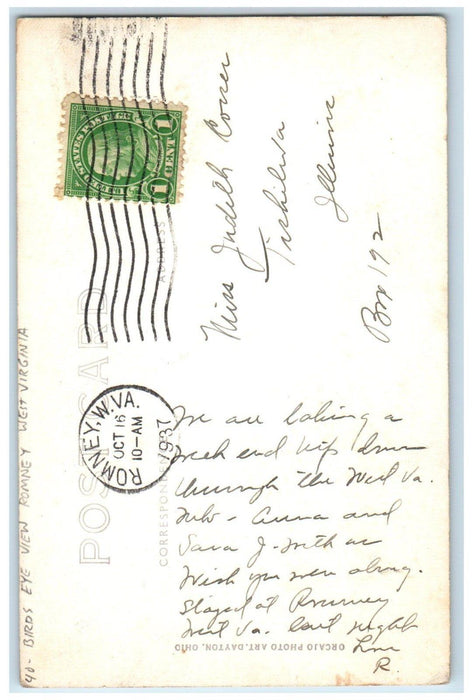 UNITED STATES POSTAGE
1 CENT 1
ROMNEY, W.VA.
OCT 16
10-AM
1937
POST CARD
ADDRESS
CORRESPONDENCE
Miss Judith
Tiskilwa
Illinois
Box 192
We are taking a
week end trip down
through the West Va.
Mts - Anna and
Sara J. with us
Wish you were along.
Stayed at Romney
West Va. last night
Love
R.
ORCAJO PHOTO ART. DAYTON, OHIO
40- BIRDS EYE VIEW ROMNEY WEST VIRGINIA